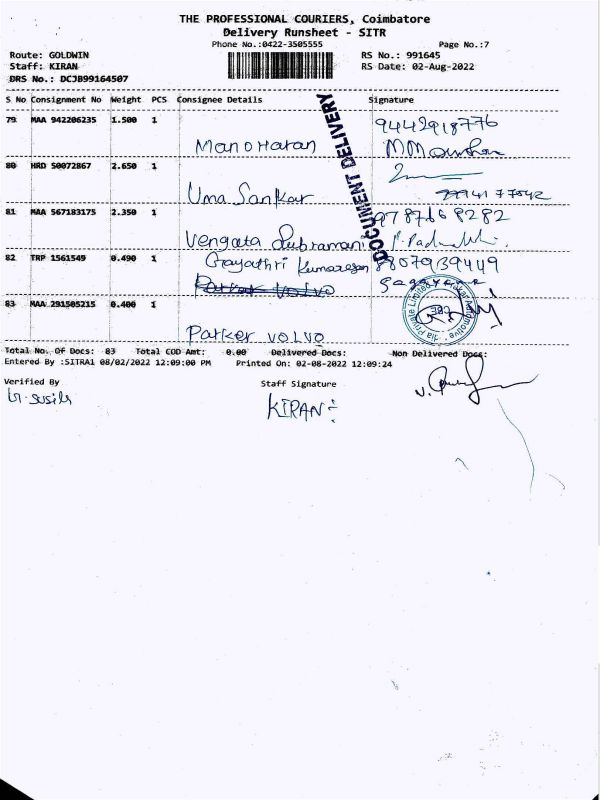 THE PROFESSIONAL COURIERS, Coimbatore
Delivery Runsheet - SITR
Phone No.:0422-3505555
Page No.:7
Route: GOLDWIN
RS No.: 991645
Staff: KIRAN
RS Date: 02-Aug-2022
DRS No.: DCJB99164507
S No Consignment No Weight PCS Consignee Details Signature
79 MAA 942206235 1.500 1
9442918776
Manoharan
80 HRD 50072867 2.650 1
Uma Sankar
81 MAA 567183175 2.350 1
978768 8282
Vengata Subramani
82 TRP 1561549 0.490 1
Gayathri Kumaresan 8807939449
Parker Volvo
83 MAA 291505215 0.400 1
Parker VOLVO
DOCUMENT DELIVERY
Total No. Of Docs: 83 Total COD Amt: 0.00 Delivered Docs: Non Delivered Docs:
Entered By :SITRA1 08/02/2022 12:09:00 PM Printed On: 02-08-2022 12:09:24
Verified By
Staff Signature
KIRAN